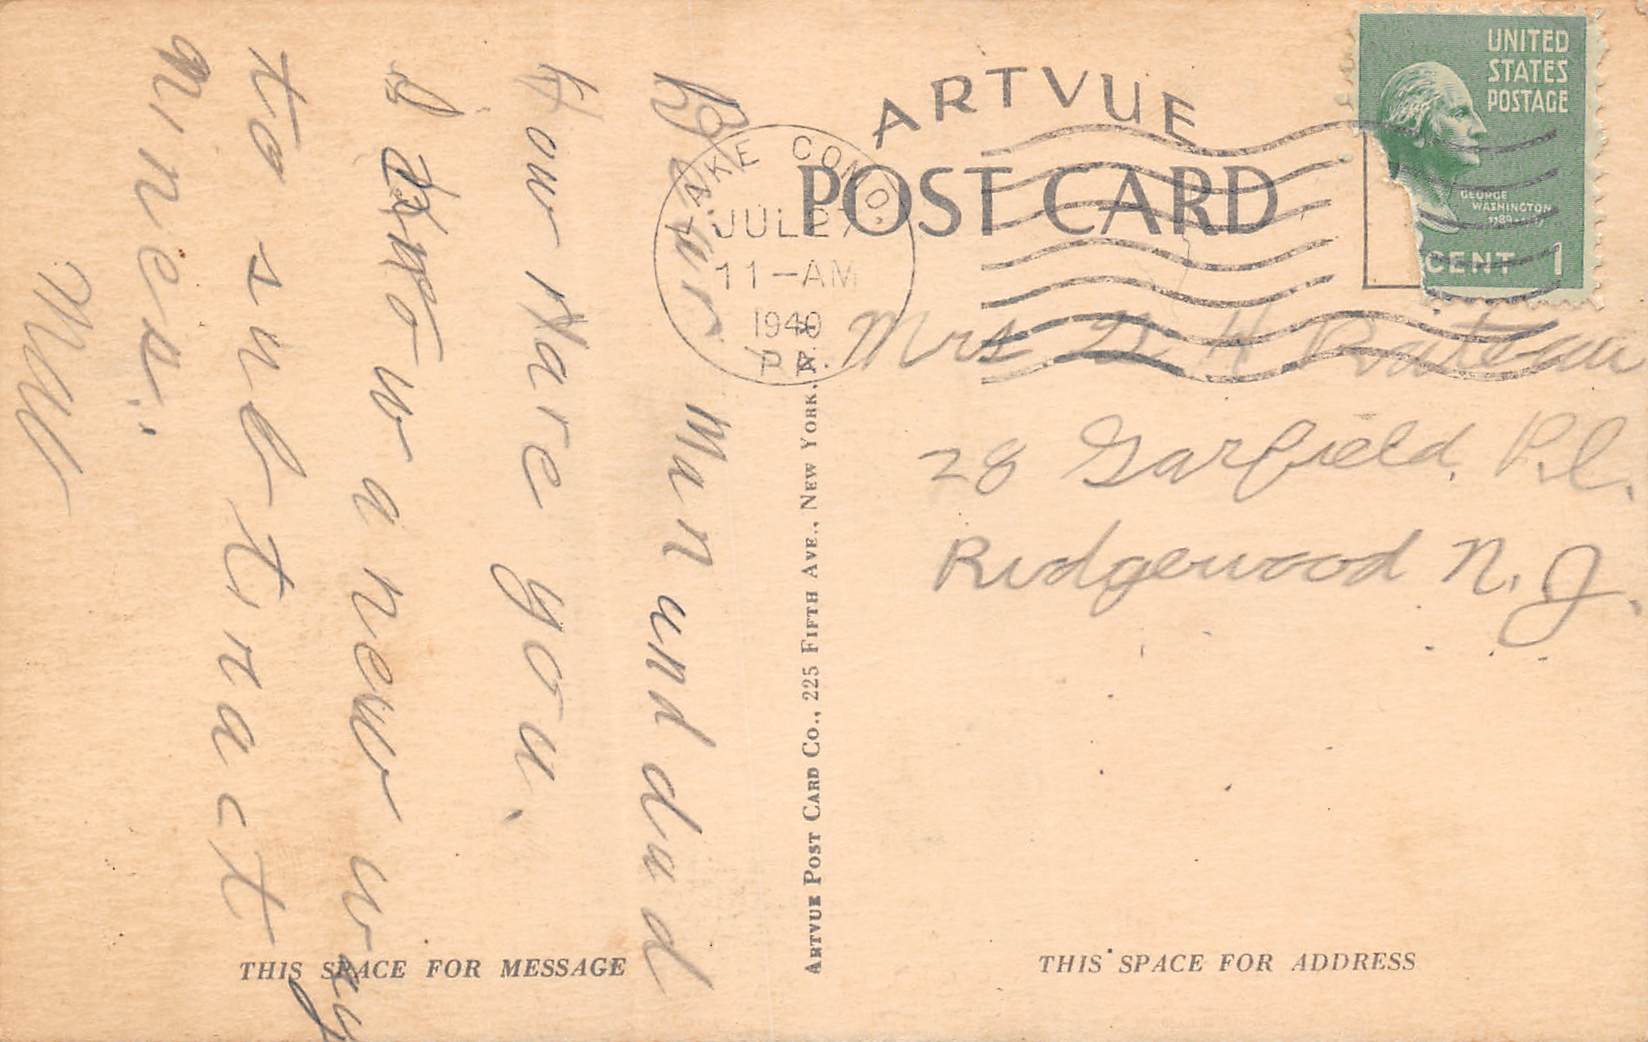 ARTVUE
POST CARD
UNITED
STATES
POSTAGE
GEORGE
WASHINGTON
CENT 1
LAKE COMO,
JUL 27
11-AM
1940
PA.
Dear Mun und dud
How Hare you.
I know a new way
to subtract
nines.
Mrs H
28 Garfield Pl.
Ridgewood N. J.
ARTVUE POST CARD CO., 225 FIFTH AVE., NEW YORK, N. Y.
THIS SPACE FOR MESSAGE
THIS SPACE FOR ADDRESS